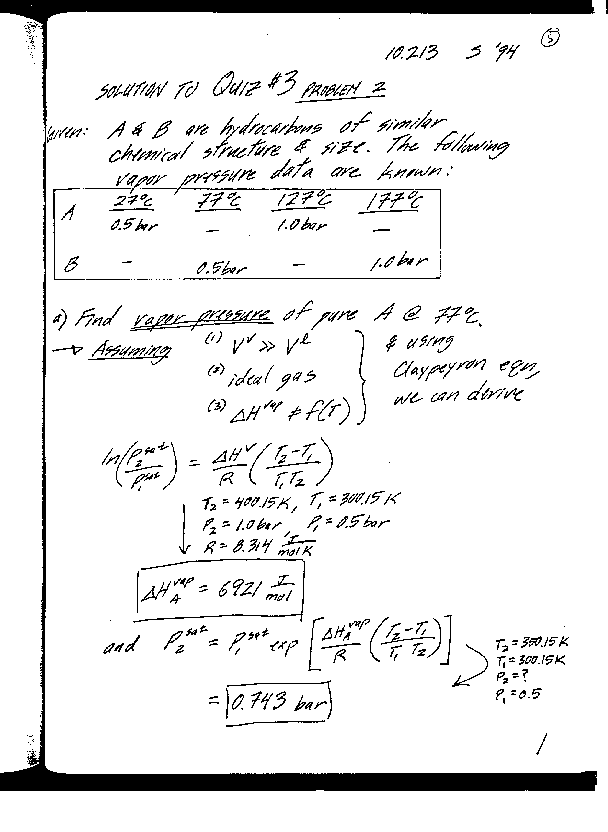 5
10.213 S '94
SOLUTION TO QUIZ #3 PROBLEM 2
Given: A & B are hydrocarbons of similar
chemical structure & size. The following
vapor pressure data are known:
27°C 77°C 127°C 177°C
A 0.5 bar — 1.0 bar —
B — 0.5 bar — 1.0 bar
a) Find vapor pressure of pure A @ 77°C.
→ Assuming (1) V^v >> V^l & using
(2) ideal gas Claypeyron eqn,
(3) ΔH^vap ≠ f(T) we can derive
ln(P_2^sat / P_1^sat) = ΔH^v/R ((T_2 - T_1)/(T_1 T_2))
T_2 = 400.15 K, T_1 = 300.15 K
P_2 = 1.0 bar, P_1 = 0.5 bar
R = 8.314 J/mol K
ΔH_A^vap = 6921 J/mol
and P_2^sat = P_1^sat exp [ΔH_A^vap/R ((T_2 - T_1)/(T_1 T_2))]
T_2 = 350.15 K
T_1 = 300.15 K
P_2 = ?
P_1 = 0.5
= 0.743 bar
1